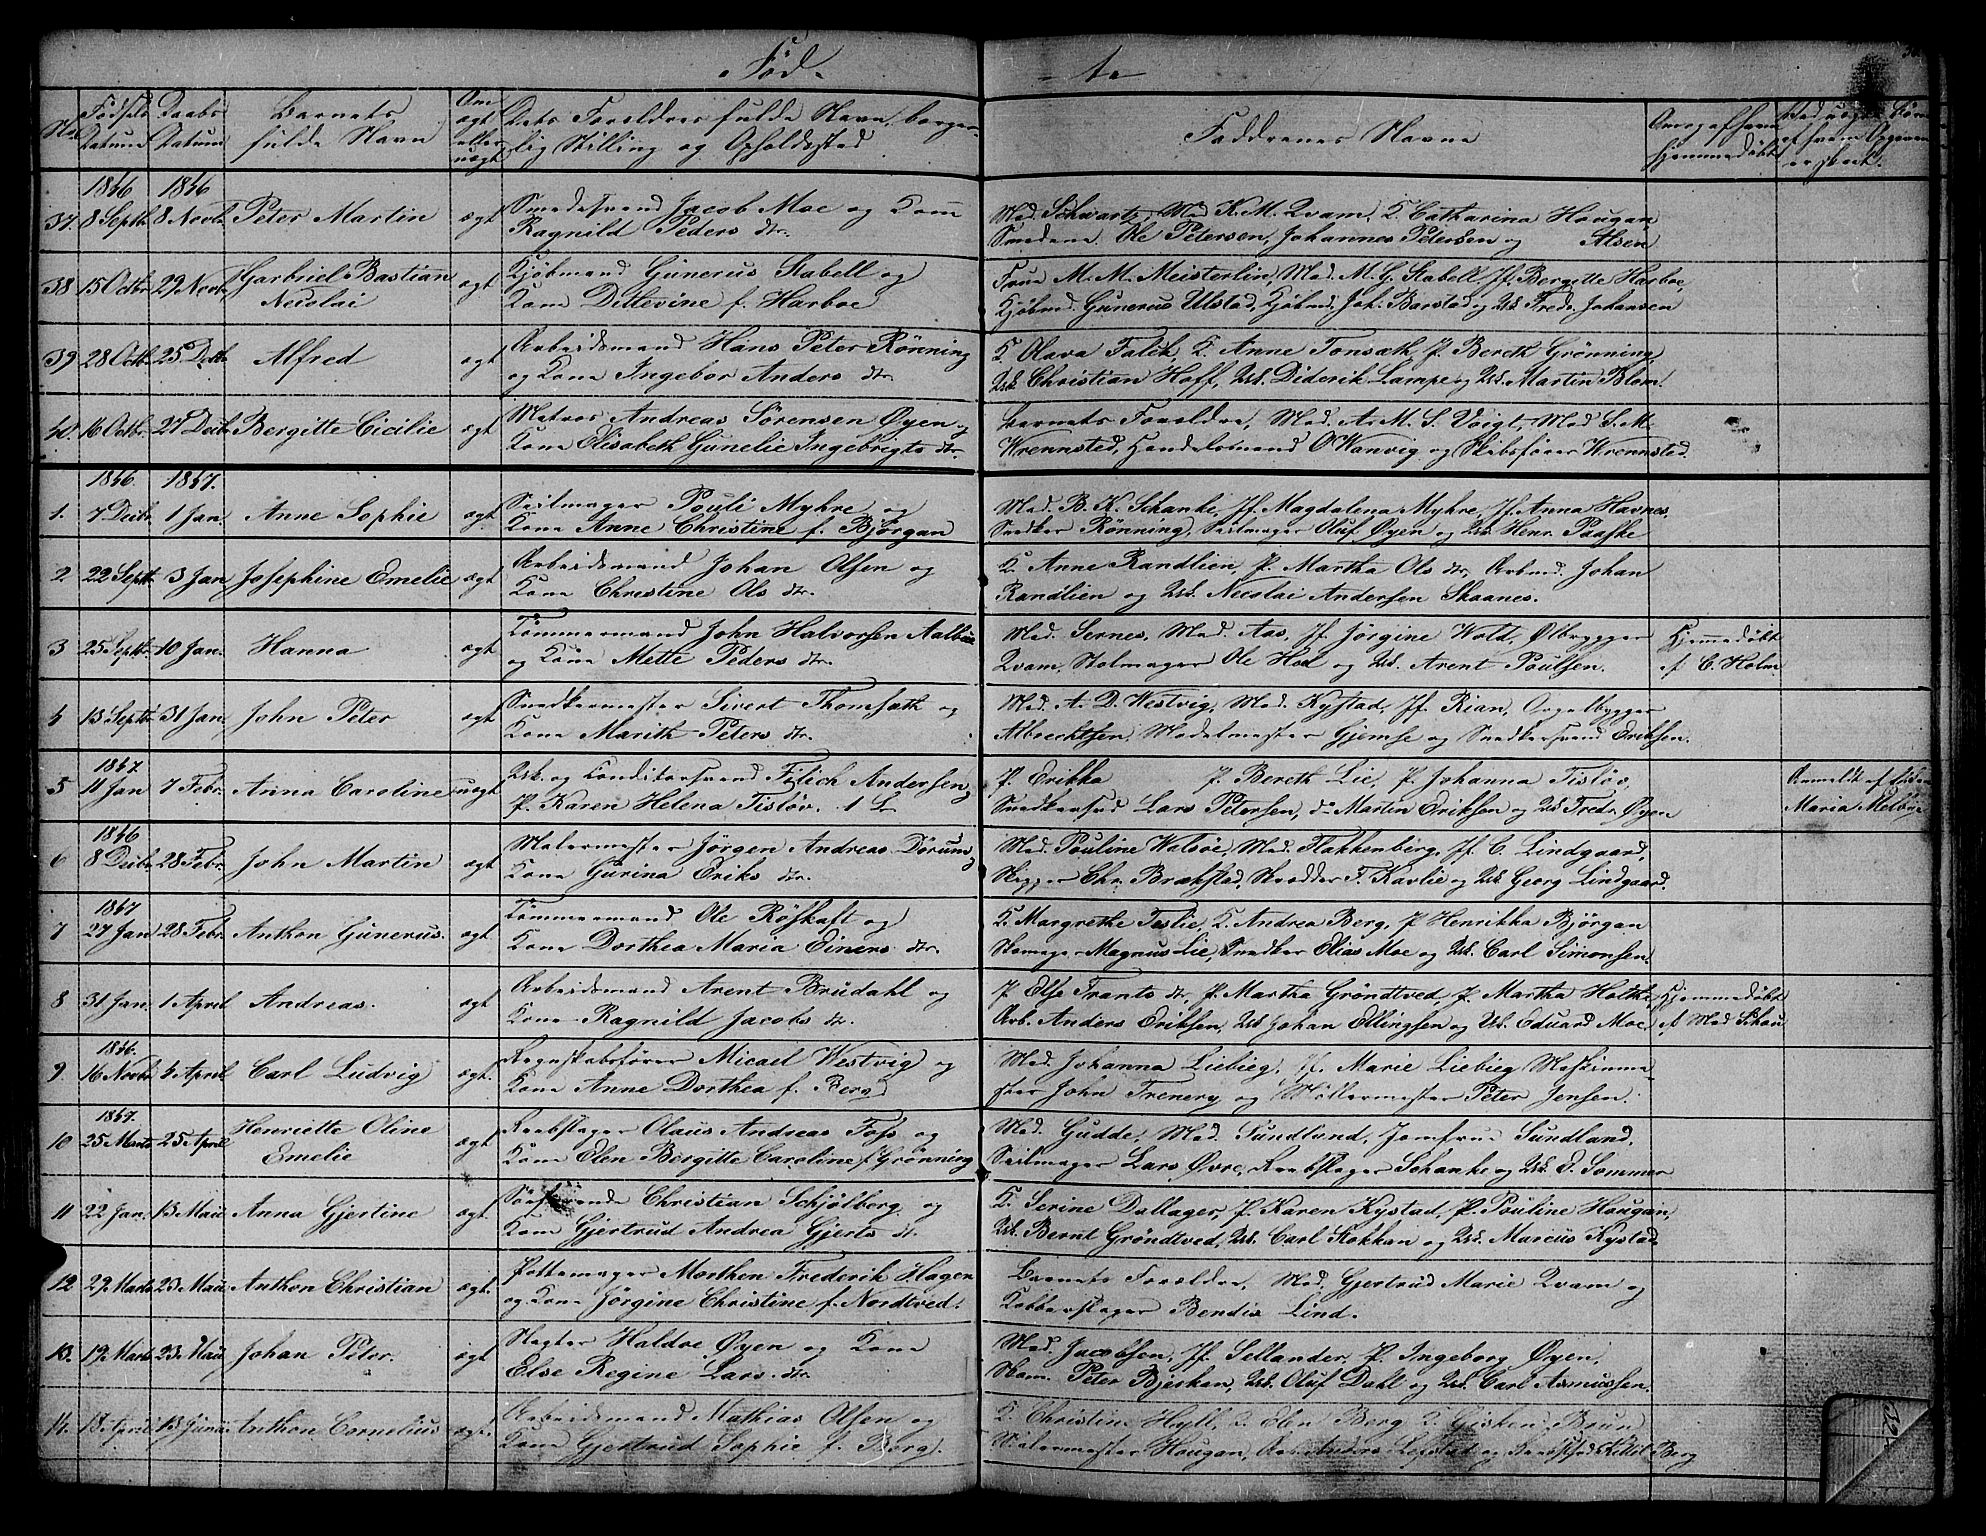 Fød-
-te
No
Fødsels Datum
Daabs Datum
Barnets fulde Navn
Om ægt eller uægt
Dets Forældres fulde Navn, borger-
lig Stilling og Opholdssted
Faddrenes Navne
hjemmedøbt
1846 1846
37. 8 Septb. 8 Novb. Peter Martin ægt Smedesvend Jacob Moe og Kone
Ragnild Peders dtr.
Mad. Schwartz, Mad K. M. Qvam, K. Catharina Hougan,
Smedene Ole Petersen, Johannes Petersen og Alsen
38 15 Octbr. 29 Novb. Garbriel Bastian
Nicolai
ægt Kjøbmand Gunerus Stabell og
Kone Ditlevine f. Harboe
Frue M. M. Meisterlin, Mad. M. G. Stabell, Jf. Bergitte Harboe,
Kjøbmd. Gunerus Ulstad, Kjøbmd. Joh. Barstad og Usk Fredr. Johansen
39 28 Octb. 25 Decb. Alfred ægt Arbeidsmand Hans Peter Rønning
og Kone Ingebor Anders dtr.
K. Olava Falch, K. Anne Tonsæth, P. Bereth Grønning,
Usk. Christian Hoff, Usk. Diderik Lampe og Usk. Martin Blom.
40. 16 Octbr. 27 Decbr. Bergitte Cicilie ægt Matros Andreas Sørensen Øyen og
Kone Elisabeth Gunelie Ingebrigts dtr.
Barnets Forældre, Mad. A. M. S. Voigt, Mad S. M.
Wrennsted, Handelsmand O Wanvig og Skibsfører Wrennsted.
1846 1847.
1. 7 Decbr. 1 Jan. Anne Sophie ægt Seilmager Pouli Myhre og
Kone Anne Christine f. Bjørgan
Mad. B. K. Schanke, Jf. Magdalena Myhre, Jf. Anna Havnes,
Snedker Rønning, Seilmager Oluf Øyen og Usk. Henr. Paaske
2 22 Septb. 3 Jan Josephine Emelie ægt Arbeidsmand Johan Olsen og
Kone Christine Ols dtr.
K Anne Randlien, P. Martha Ols dtr, Arbmd. Johan
Randlien og Usk. Nicolai Andersen Skaanes.
3 25 Septbr. 10 Jan. Hanna ægt Tømmermand John Halvorsen Aalbu
og Kone Mette Peders dtr.
Mad. Sernes, Mad. Aas, Jf. Jørgine Wold, Ølbrygger
Qvam, Stolmager Ole Hod og Usk. Arent Poulsen.
Hjemmedøbt
af C. Holm
4 13 Septbr. 31 Jan. John Peter ægt Snedkermester Sivert Thomsæth og
Kone Marith Peters dtr.
Mad. A. D. Westvig, Mad. Kystad, Jf. Rian, Orgelbygger
Albrechtsen, Modelmester Gjemse og Snedkersvend Eriksen.
1847.
5 11 Jan 7 Febr. Anna Caroline uægt Usk. og Conditorsvend Andersen,
P. Karen Helena Tisløv. 1 L
P. Erikka P. Bereth Lie, P. Johanna Tisløv,
Snedkersvd Lars Petersen, do Martin Eriksen og Usk Fredr. Øyen
Anmeldt af
Maria Melbye
1846
6 8 Decbr. 28 Febr. John Martin ægt Malermester Jørgen Andreas Dørum
Kone Gurina Eriks dtr.
Mad. Pouline Welsøe, Mad. Flakkenberg, Jf. C. Lindgaard,
Chr. Brækstad, Skrædder F. Kavlie og Usk. Georg Lindgaard.
1847
7 27 Jan 28 Febr. Anthon Gunerus. ægt Tømmermand Ole Røfskaft og
Kone Dorthea Maria Einers dtr.
K. Margrethe Teslie, K. Andrea Berg, P. Henrikka Bjørgan
Skomager Magnus Lie, Snedker Elias Moe og Usk. Carl Simonsen.
8 31 Jan. 1 April Andreas. ægt Arbeidsmand Arent Brudahl og
Kone Ragnild Jacobs dtr.
P. Else Frants dtr, P. Martha Grøndtved, P. Martha Holthe,
Arb. Anders Eriksen, Usk Johan Ellingsen og Usk. Eduard Moe
Hjemmedøbt
af Mad Schou
1846.
9 16 Novbr 4 April Carl Ludvig ægt. Regnskabsfører Micael Westvig og
Kone Anne Dorthea f. Berg
Mad. Johanna Liebieg, Jf. Marie Liebieg, Maskinme-
ster John Trenery og Møllermester Peter Jensen.
1847.
10 25 Marts 25 April Henriette Oline
Emelie
ægt Reebslager Olaus Andreas Foss og
Kone Elen Bergitte Caroline f. Grønning
Mad. Gudde, Mad. Sundlund, Jomfrue Sundland,
Seilmager Lars Øvre, Reebslager Schanke og Usk. D. Sommer
11 22 Jan. 13 Mai Anna Gjertine ægt Søefarende Christian Schjølberg og
Kone Gjertrud Andrea Gjerts dtr.
K. Serine Dallager, P. Karen Kystad, P. Pouline Hougan,
Usk. Bernt Grøndtved, Usk. Carl Stokkan og Usk. Marcus Kystad
12 29 Marts 23 Mai Anthon Christian ægt. Pottemager Morthen Frederik Hagen
og Kone Jørgine Christine f. Nordtved.
Barnets Forældre, Mad. Gjertrud Marie Qvam og
Kobberslager Bendix Lind.
13. 19 Marts 23 Mai Johan Peter. ægt Slagter Haldoe Øyen og Kone
Else Regine Lars dtr.
Mad. Jacobsen, Jf. Sellander, P. Ingeborg Øyen,
Skom. Peter Bjerkan, Usk. Oluf Dahl og Usk. Carl Asmussen.
14. 18 April 13 Juni Anthon Cornelius ægt. Arbeidsmand Mathias Olsen og
Kone Gjertrud Sophie f. Berg.
K. Christine Hyll, K. Elen Berg, K. Brun
Malermester Hougan, Anders Leistad og Berg